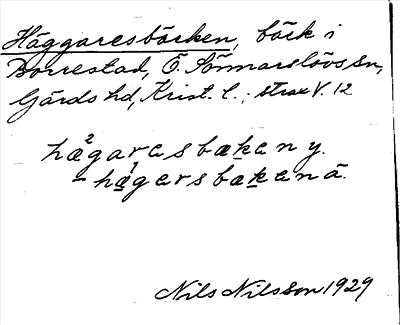 Häggaresbäcken, bäck i
Borrestad, Ö. Sönnarslövs sn,
Gärds hd, Krist. l.; strax V. 12
hægarasbækan y.
– hægersbækenä.
Nils Nilsson 1929